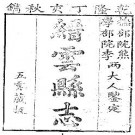 乾隆丁亥秋鐫
部院熊
學部院李
兩大人鑒定
縉雲縣志
五雲